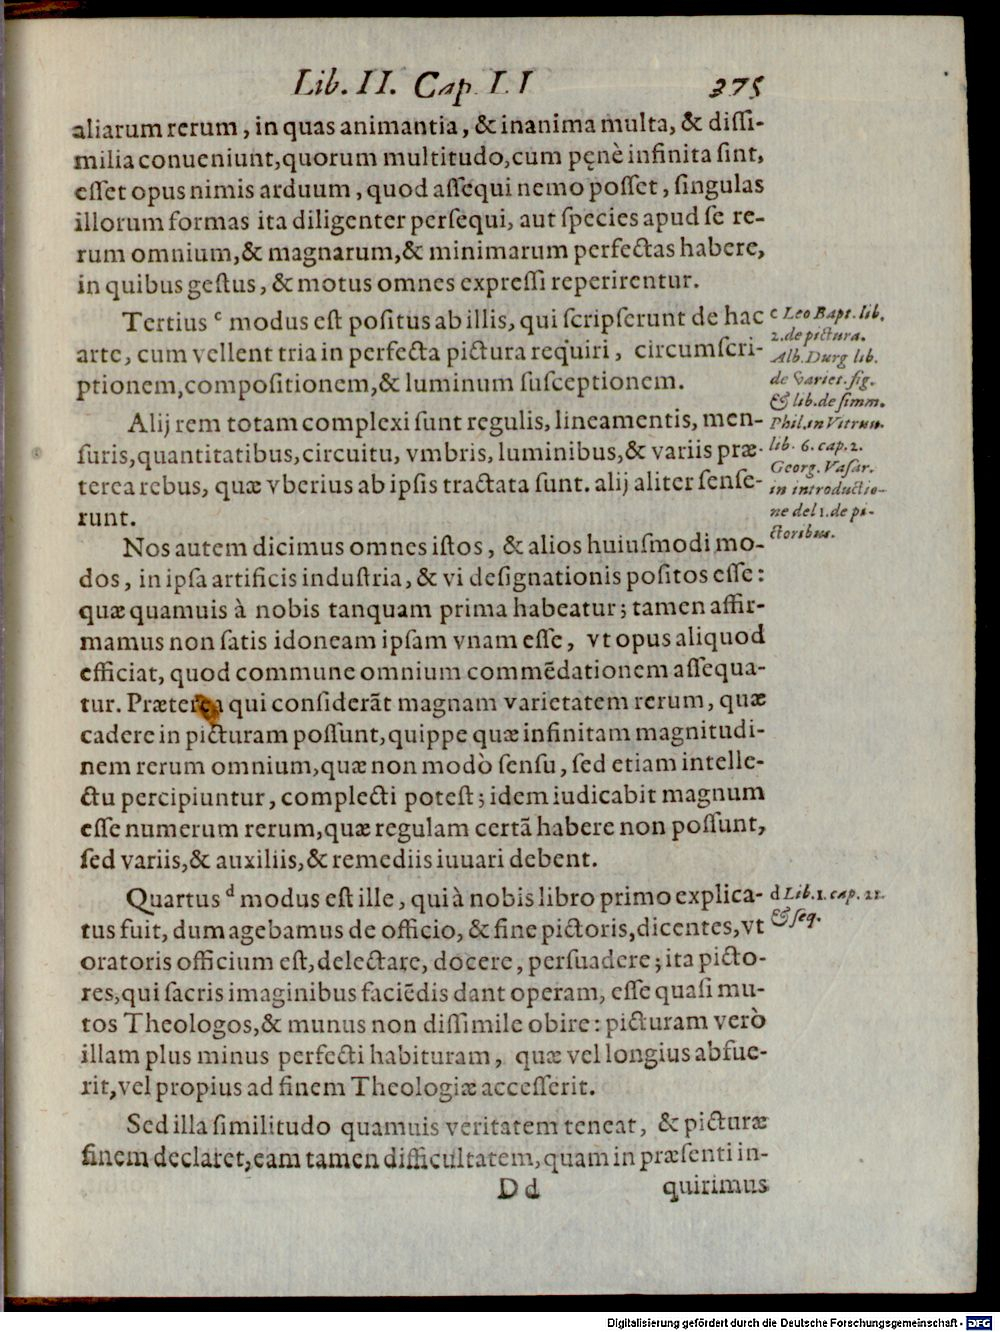 Lib. II. Cap. LI 375
aliarum rerum, in quas animantia, & inanima multa, & dissi-
milia conueniunt, quorum multitudo, cum pęnè infinita sint,
esset opus nimis arduum, quod assequi nemo posset, singulas
illorum formas ita diligenter persequi, aut species apud se re-
rum omnium, & magnarum, & minimarum perfectas habere,
in quibus gestus, & motus omnes expressi reperirentur.
Tertius c modus est positus ab illis, qui scripserunt de hac
arte, cum vellent tria in perfecta pictura requiri, circumscri-
ptionem, compositionem, & luminum susceptionem.
Alij rem totam complexi sunt regulis, lineamentis, men-
suris, quantitatibus, circuitu, vmbris, luminibus, & variis præ-
terea rebus, quæ vberius ab ipsis tractata sunt. alij aliter sense-
runt.
c Leo Bapt. lib.
2. de pictura.
Alb. Durg lib.
de variet. fig.
& lib. de simm.
Phil. in Vitruu.
lib. 6. cap. 2.
Georg. Vasar.
in introductio-
ne del 1. de pi-
ctoribus.
Nos autem dicimus omnes istos, & alios huiusmodi mo-
dos, in ipsa artificis industria, & vi designationis positos esse:
quæ quamuis à nobis tanquam prima habeatur; tamen affir-
mamus non satis idoneam ipsam vnam esse, vt opus aliquod
efficiat, quod commune omnium commẽdationem assequa-
tur. Præterea qui considerãt magnam varietatem rerum, quæ
cadere in picturam possunt, quippe quæ infinitam magnitudi-
nem rerum omnium, quæ non modò sensu, sed etiam intelle-
ctu percipiuntur, complecti potest; idem iudicabit magnum
esse numerum rerum, quæ regulam certã habere non possunt,
sed variis, & auxiliis, & remediis iuuari debent.
Quartus d modus est ille, qui à nobis libro primo explica-
tus fuit, dum agebamus de officio, & fine pictoris, dicentes, vt
oratoris officium est, delectare, docere, persuadere; ita picto-
res, qui sacris imaginibus faciẽdis dant operam, esse quasi mu-
tos Theologos, & munus non dissimile obire: picturam verò
illam plus minus perfecti habituram, quæ vel longius absue-
rit, vel propius ad finem Theologiæ accesserit.
d Lib. 1. cap. 21.
& seq.
Sed illa similitudo quamuis veritatem teneat, & picturæ
finem declaret, eam tamen difficultatem, quam in præsenti in-
Dd quirimus
Digitalisierung gefördert durch die Deutsche Forschungsgemeinschaft - DFG